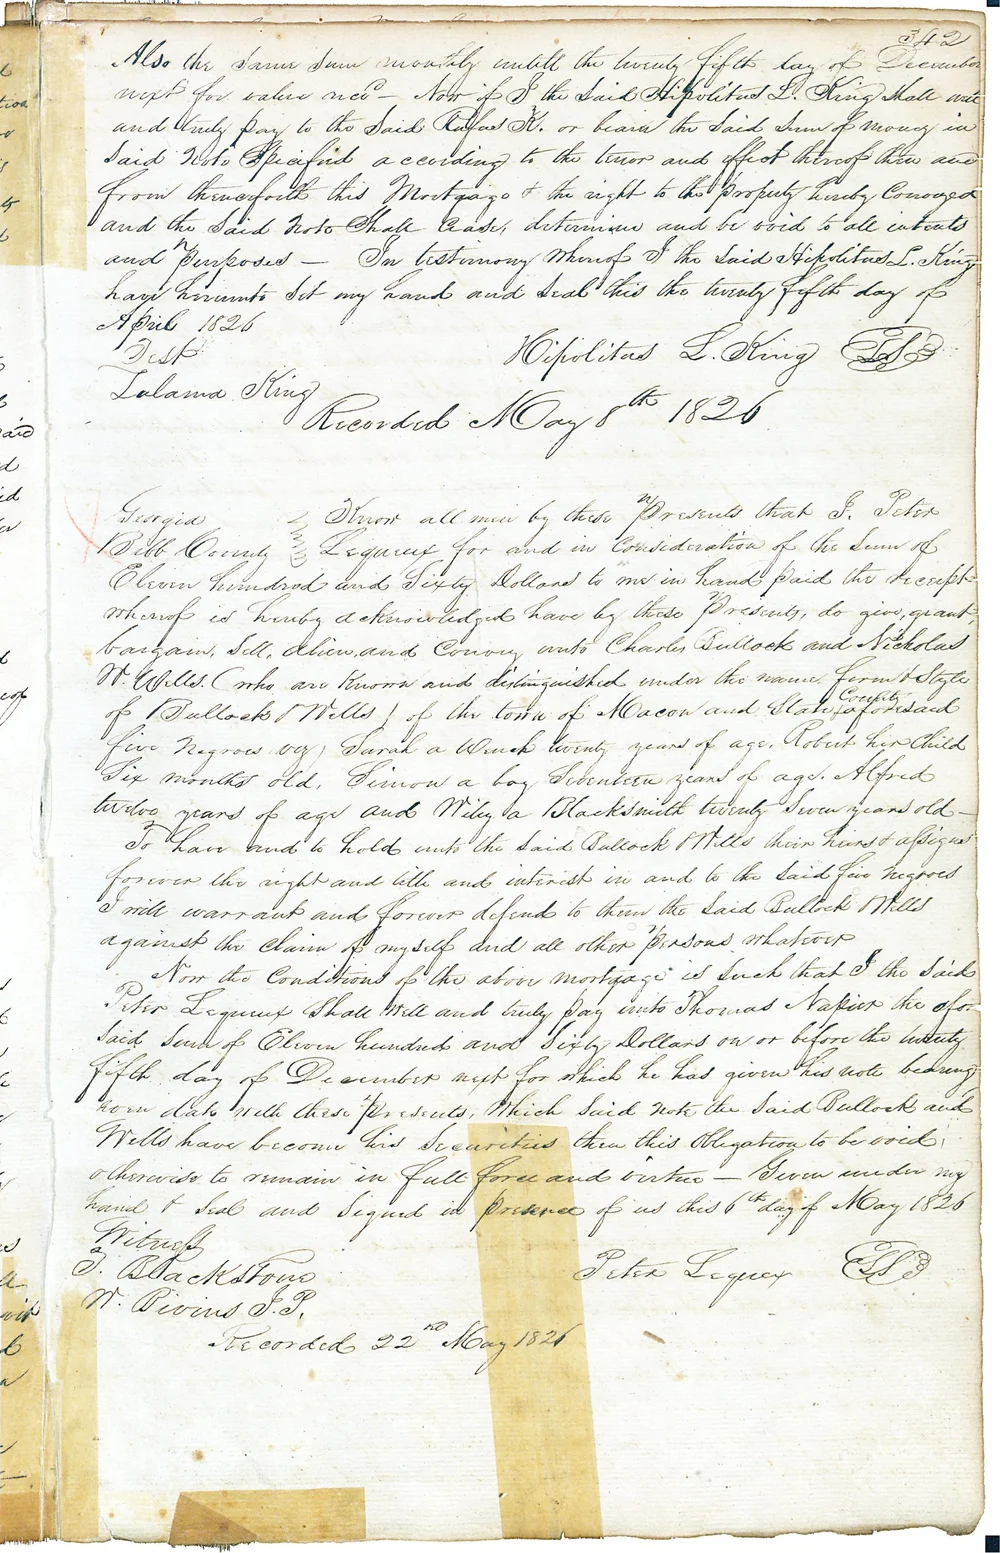 342
Also the same sum monthly untill the twenty fifth day of December
next for value recd — Now if I the said Hipolitus L. King shall well
and truly pay to the said Rufus K. or bearer the said sum of money in
said note specified according to the tenor and effect thereof then and
from thenceforth this Mortgage & the right to the property hereby Conveyed
and the said note shall cease, determine and be void to all intents
and purposes — In testimony whereof I the said Hipolitus L. King
have hereunto set my hand and seal this the twenty fifth day of
April 1826
Test
Hipolitus L. King LS
King
Recorded May 8th 1826
Georgia Know all men by these Presents that I. Peter
Bibb County Lequeux for and in Consideration of the sum of
Eleven hundred and Sixty Dollars to me in hand paid the receipt
whereof is hereby acknowledged have by these Presents, do give, grant,
bargain, Sell, alien, and Convey unto Charles Bullock and Nicholas
W. Wells. (who are known and distinguished under the name firm & Style
of Bullock & Wells) of the town of Macon and State & County aforesaid
five Negroes viz, Sarah a Wench twenty years of age, Robert her Child
Six months old, Simon a boy Seventeen years of age. Alfred
twelve years of age and Wiley a Blacksmith twenty Seven years old —
To have and to hold unto the said Bullock & Wells their heirs & assigns
forever the right and title and interest in and to the said five negroes
I will warrant and forever defend to them the said Bullock & Wells
against the claim of myself and all other persons whatever
Now the Conditions of the above mortgage is such that I the said
Peter Lequeux shall well and truly pay unto Thomas Napier the afore
said sum of Eleven hundred and Sixty Dollars on or before the twenty
fifth day of December next for which he has given his note bearing
even date with these presents, which said note the said Bullock and
Wells have become his securities then this obligation to be void,
otherwise to remain in full force and virtue — Given under my
hand & seal and signed in presence of us this 6th day of May 1826
Witness
J. Blackstone Peter Lequex LS
W. Bivins J.P.
Recorded 22nd May 1826